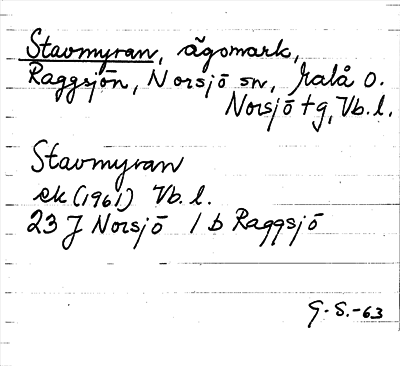 Stavmyran, ägomark,
Raggsjön, Norsjö sn, Malå o.
Norsjö tg, Vb.l.
Stavmyran
ek (1961) Vb.l.
23 J Norsjö 1 b Raggsjö
G.S.-63